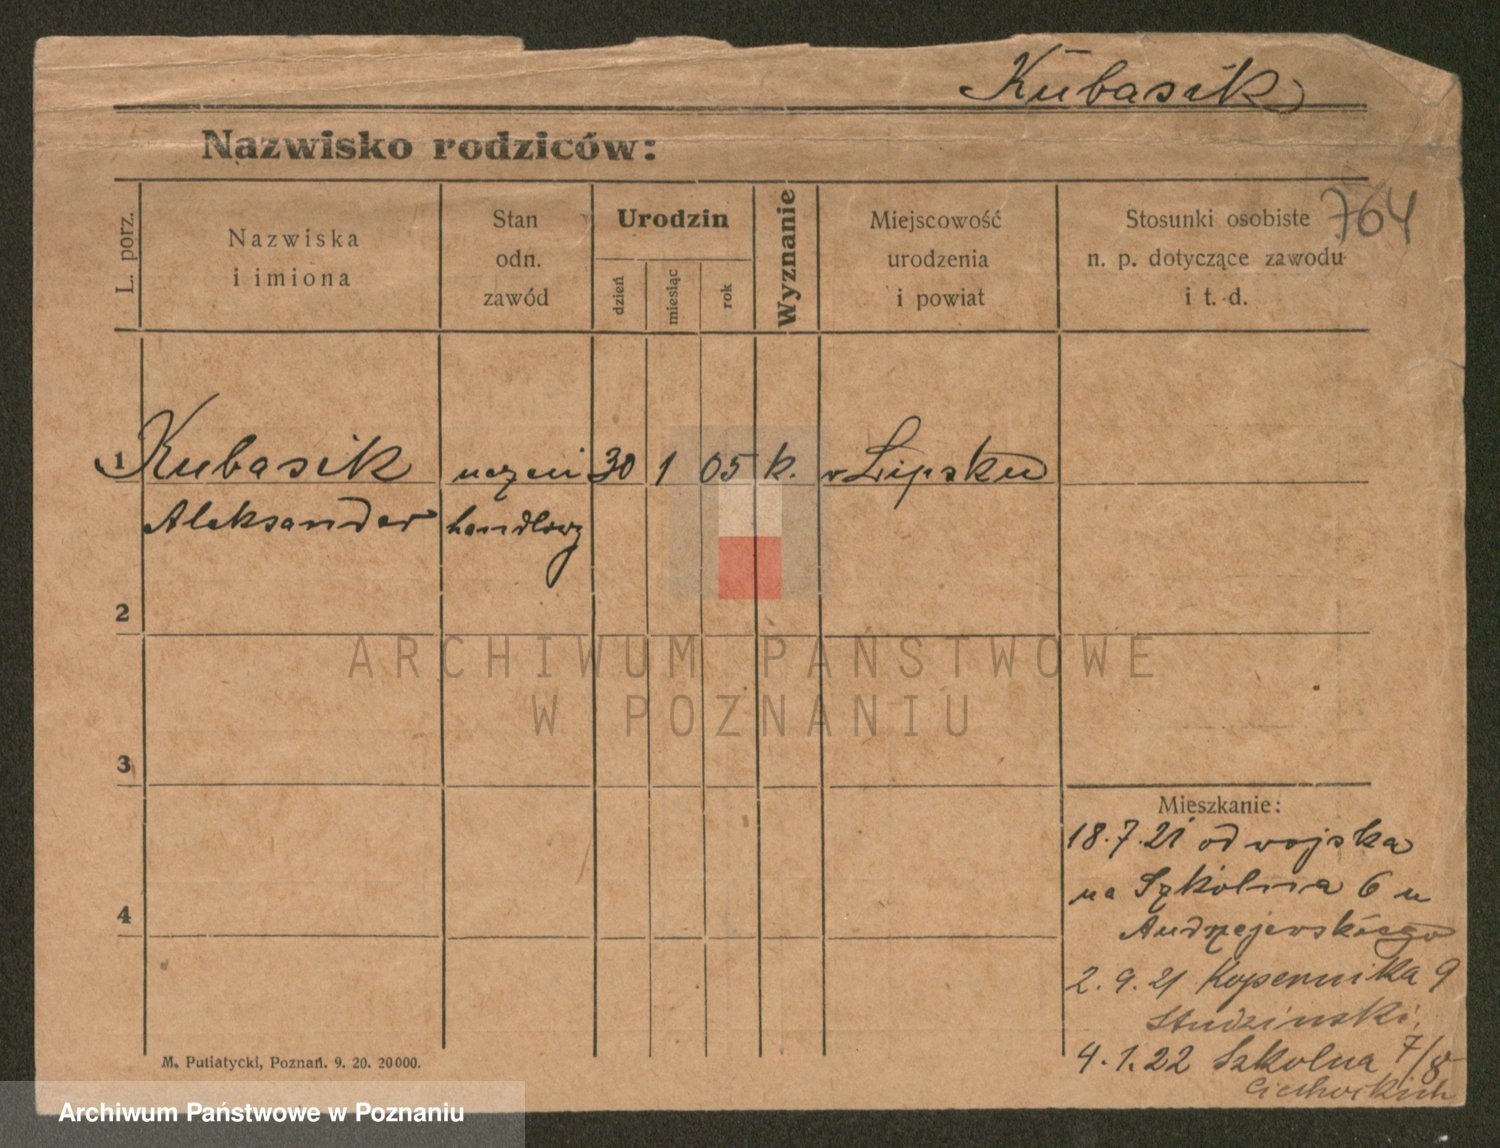 Kubasik
Nazwisko rodziców:
764
L. porz.
Nazwiska
i imiona
Stan
odn.
zawód
Urodzin
dzień
miesiąc
rok
Wyznanie
Miejscowość
urodzenia
i powiat
Stosunki osobiste
n. p. dotyczące zawodu
i t. d.
1 Kubasik uczeń 30 1 05 k. w Lipsku
Aleksander handlowy
2
3
4
Mieszkanie:
18.7.21 od wojska
na Szkolna 6 u
Andrzejewskiego
2.9.21 Kopernika 9
Studzinski
4.1.22 Szkolna 7/8
M. Putiatycki, Poznań. 9. 20. 20000.
ARCHIWUM PAŃSTWOWE
W POZNANIU
Archiwum Państwowe w Poznaniu